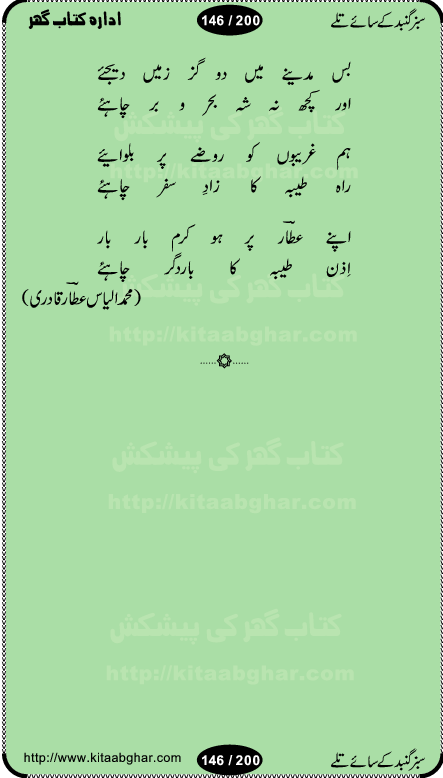 سبز گنبد کے سائے تلے 146 / 200 ادارہ کتاب گھر
بس مدینے میں دو گز زمیں دیجئے
اور کچھ نہ شہ بحر و بر چاہئے
کتاب گھر کی پیشکش
ہم غریبوں کو روضے پر بلوائیے
http://kitaabghar.com
راہ طیبہ کا زادِ سفر چاہئے
اپنے عطارؔ پر ہو کرم بار بار
اِذن طیبہ کا باردگر چاہئے
کتاب گھر کی پیشکش
(محمد الیاس عطارؔ قادری)
http://kitaabghar.com
کتاب گھر کی پیشکش
http://kitaabghar.com
کتاب گھر کی پیشکش
http://kitaabghar.com
سبز گنبد کے سائے تلے 146 / 200 http://www.kitaabghar.com